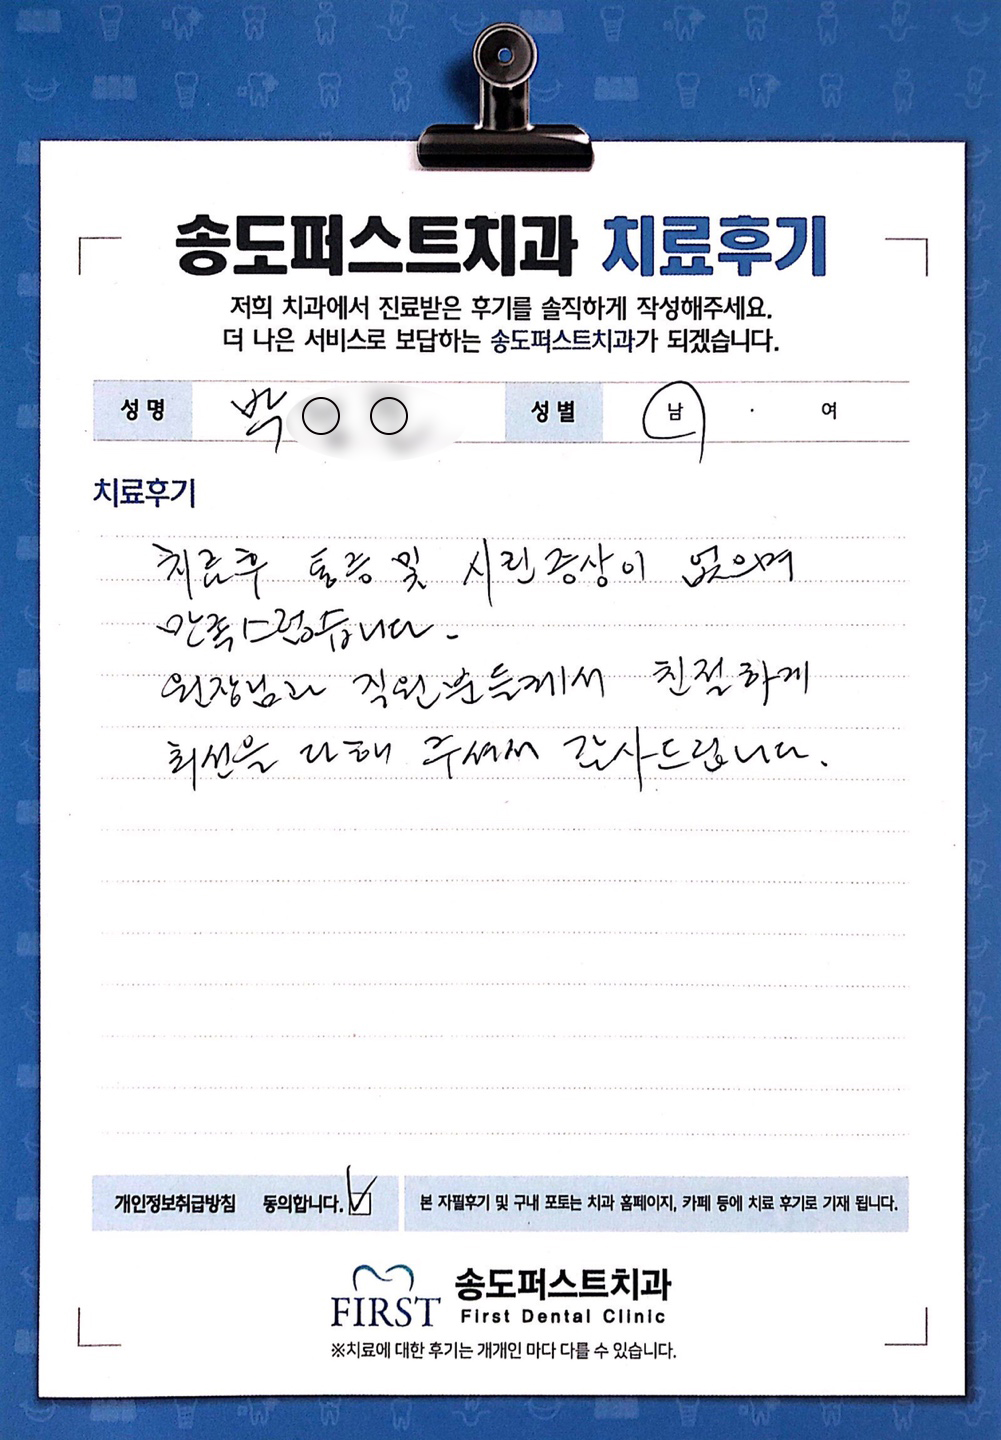 송도퍼스트치과 치료후기
저희 치과에서 진료받은 후기를 솔직하게 작성해주세요.
더 나은 서비스로 보답하는 송도퍼스트치과가 되겠습니다.
성명 박○○ 성별 남 · 여
치료후기
치료후 통증 및 시린증상이 없으며
만족스럽습니다.
원장님과 직원분들께서 친절하게
최선을 다해 주셔서 감사드립니다.
개인정보취급방침 동의합니다. 본 자필후기 및 구내 포토는 치과 홈페이지, 카페 등에 치료 후기로 기재 됩니다.
FIRST 송도퍼스트치과
First Dental Clinic
※치료에 대한 후기는 개개인 마다 다를 수 있습니다.